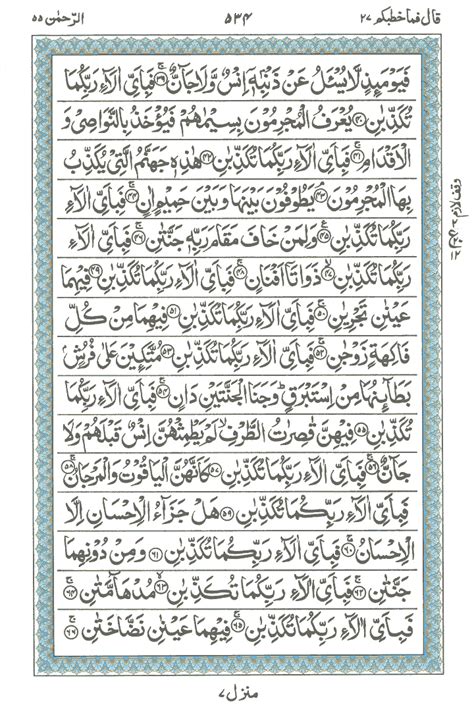 قال فماخطبكم ٢٧ ٥٣٤ الرّحمٰن ٥٥
فَيَوْمَئِذٍ لَّا يُسْـَٔلُ عَنْ ذَنْۢبِهٖۤ اِنْسٌ وَّلَا جَآنٌّ ۚ‏﴿۳۹﴾ فَبِاَىِّ اٰلَاۤءِ رَبِّكُمَا
تُكَذِّبٰنِ ﴿۴۰﴾ يُعْرَفُ الْمُجْرِمُوْنَ بِسِيْمٰهُمْ فَيُؤْخَذُ بِالنَّوَاصِىْ وَ
الْاَقْدَامِ ۚ‏﴿۴۱﴾ فَبِاَىِّ اٰلَاۤءِ رَبِّكُمَا تُكَذِّبٰنِ ﴿۴۲﴾ هٰذِهٖ جَهَنَّمُ الَّتِىْ يُكَذِّبُ
بِهَا الْمُجْرِمُوْنَ ۘ‏﴿۴۳﴾ يَطُوْفُوْنَ بَيْنَهَا وَبَيْنَ حَمِيْمٍ اٰنٍ ۚ‏﴿۴۴﴾ فَبِاَىِّ اٰلَاۤءِ
رَبِّكُمَا تُكَذِّبٰنِ ﴿۴۵﴾ وَلِمَنْ خَافَ مَقَامَ رَبِّهٖ جَنَّتٰنِ ۚ‏﴿۴۶﴾ فَبِاَىِّ اٰلَاۤءِ
رَبِّكُمَا تُكَذِّبٰنِ ۙ‏﴿۴۷﴾ ذَوَاتَاۤ اَفْنَانٍ ۚ‏﴿۴۸﴾ فَبِاَىِّ اٰلَاۤءِ رَبِّكُمَا تُكَذِّبٰنِ ﴿۴۹﴾ فِيْهِمَا
عَيْنٰنِ تَجْرِيٰنِ ۚ‏﴿۵۰﴾ فَبِاَىِّ اٰلَاۤءِ رَبِّكُمَا تُكَذِّبٰنِ ﴿۵۱﴾ فِيْهِمَا مِنْ كُلِّ
فَاكِهَةٍ زَوْجٰنِ ۚ‏﴿۵۲﴾ فَبِاَىِّ اٰلَاۤءِ رَبِّكُمَا تُكَذِّبٰنِ ﴿۵۳﴾ مُتَّكِـِٕيْنَ عَلٰى فُرُشٍۢ
بَطَآئِنُهَا مِنْ اِسْتَبْرَقٍ ؕ وَجَنَا الْجَنَّتَيْنِ دَانٍ ۚ‏﴿۵۴﴾ فَبِاَىِّ اٰلَاۤءِ رَبِّكُمَا
تُكَذِّبٰنِ ﴿۵۵﴾ فِيْهِنَّ قٰصِرٰتُ الطَّرْفِ ۙ لَمْ يَطْمِثْهُنَّ اِنْسٌ قَبْلَهُمْ وَلَا
جَآنٌّ ۚ‏﴿۵۶﴾ فَبِاَىِّ اٰلَاۤءِ رَبِّكُمَا تُكَذِّبٰنِ ۚ‏﴿۵۷﴾ كَاَنَّهُنَّ الْيَاقُوْتُ وَالْمَرْجَانُ ۚ‏﴿۵۸﴾
فَبِاَىِّ اٰلَاۤءِ رَبِّكُمَا تُكَذِّبٰنِ ﴿۵۹﴾ هَلْ جَزَآءُ الْاِحْسَانِ اِلَّا
الْاِحْسَانُ ۚ‏﴿۶۰﴾ فَبِاَىِّ اٰلَاۤءِ رَبِّكُمَا تُكَذِّبٰنِ ﴿۶۱﴾ وَمِنْ دُوْنِهِمَا
جَنَّتٰنِ ۚ‏﴿۶۲﴾ فَبِاَىِّ اٰلَاۤءِ رَبِّكُمَا تُكَذِّبٰنِ ۙ‏﴿۶۳﴾ مُدْهَآمَّتٰنِ ۚ‏﴿۶۴﴾
فَبِاَىِّ اٰلَاۤءِ رَبِّكُمَا تُكَذِّبٰنِ ۚ‏﴿۶۵﴾ فِيْهِمَا عَيْنٰنِ نَضَّاخَتٰنِ ۚ‏﴿۶۶﴾
وقف لازم
منزل ٧